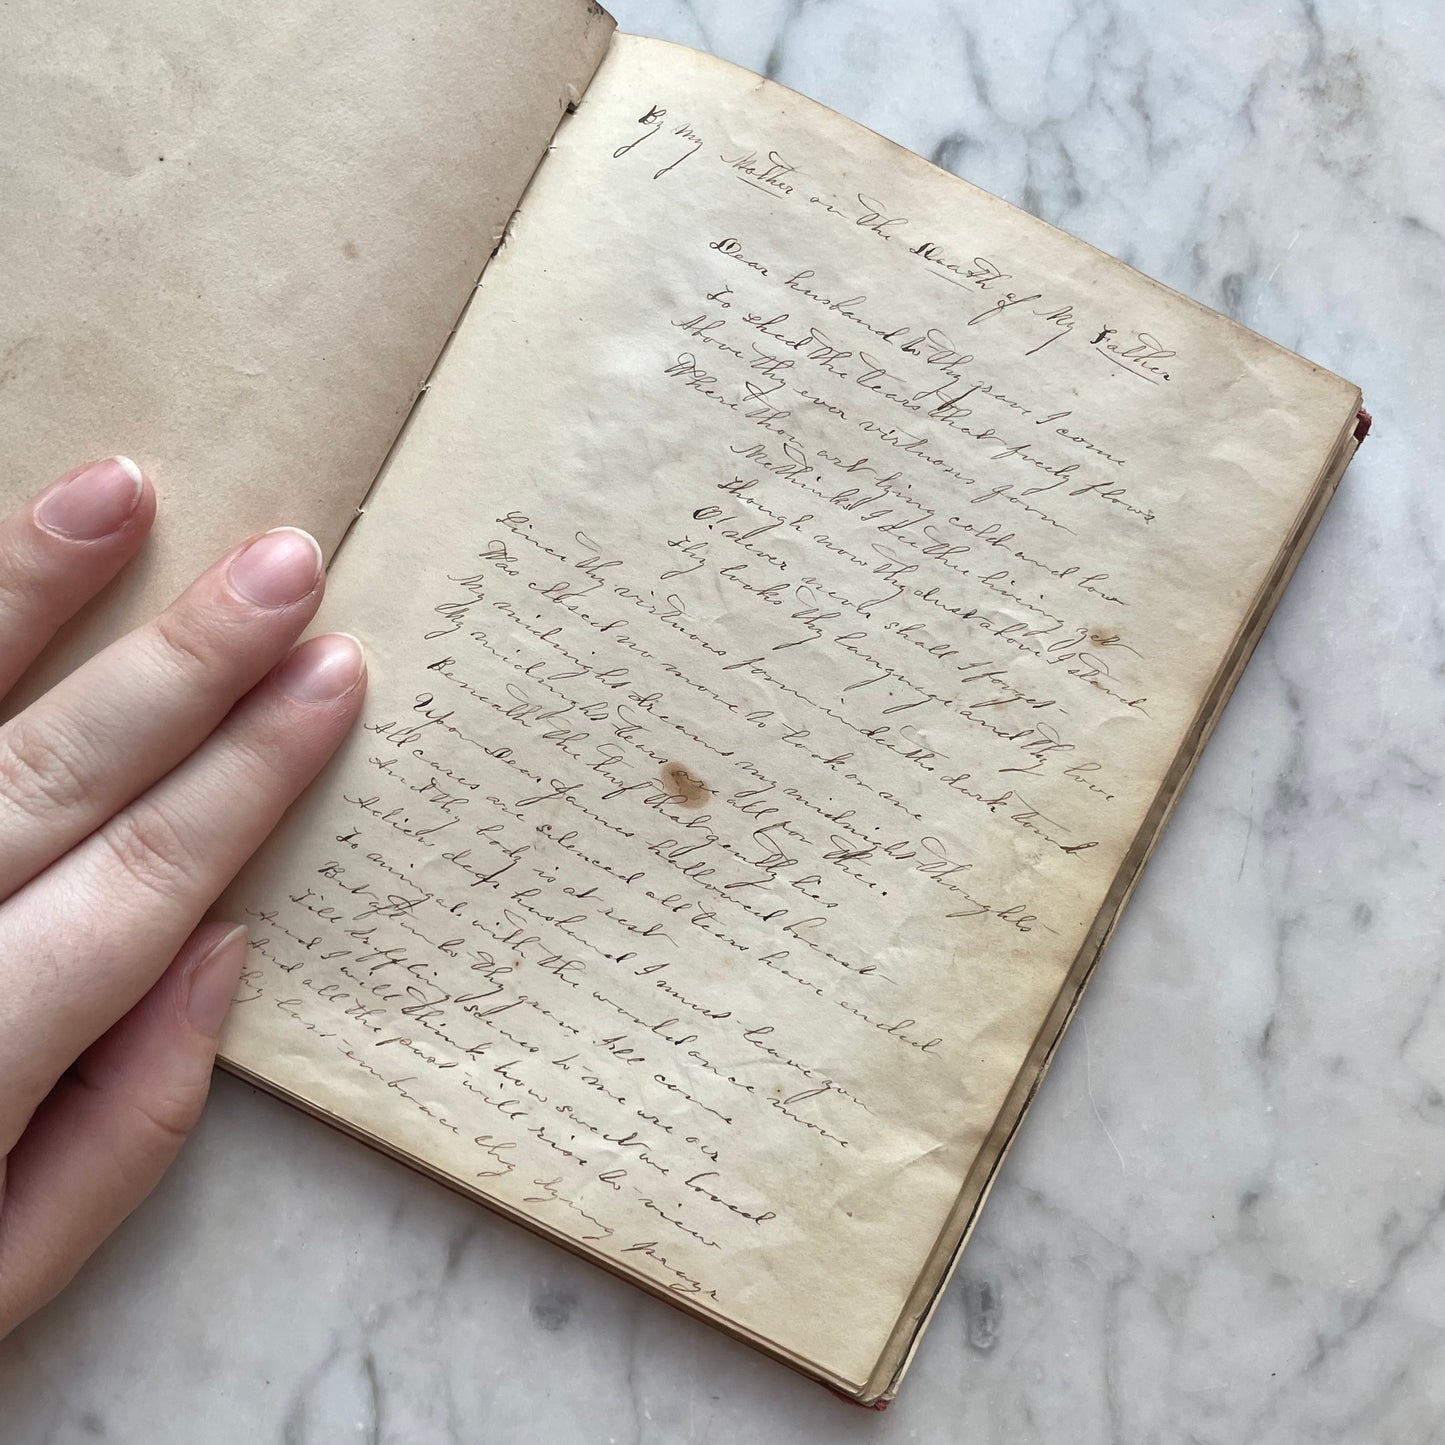 By My Mother on the Death of My Father
Dear husband to thy grave I come
To shed the tears that freely flows
Above thy ever virtuous form
Where thou art lying cold and low
Methinks I see thee living yet
Though now thy dust above I stand
O! never never shall I forget
Thy looks thy language and thy love
Since thy virtuous form in deaths dark tomb
Was closed no more to look on me
My midnight dreams my midnight thoughts
My midnight tears are all for thee.
Beneath the turf that gently lies
Upon Dear James hallowed breast
All cares are silenced all tears have ended
And thy body is at rest
Adieu dear husband I must leave you
To mingle with the world once more
But oft to thy grave Ill come
Till scenes to me are oer
And I will think how sweet we loved
And all the past will rise to view
Thy last embrace thy dying prayr